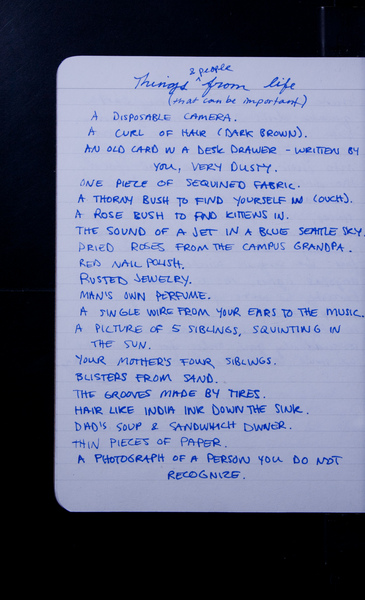 & people
Things ^ from life
(that can be important)
A DISPOSABLE CAMERA.
A CURL OF HAIR (DARK BROWN).
AN OLD CARD IN A DESK DRAWER - WRITTEN BY
YOU, VERY DUSTY.
ONE PIECE OF SEQUINED FABRIC.
A THORNY BUSH TO FIND YOURSELF IN (OUCH).
A ROSE BUSH TO FIND KITTENS IN.
THE SOUND OF A JET IN A BLUE SEATTLE SKY.
DRIED ROSES FROM THE CAMPUS GRANDPA.
RED NAIL POLISH.
RUSTED JEWELRY.
MAN'S OWN PERFUME.
A SINGLE WIRE FROM YOUR EARS TO THE MUSIC.
A PICTURE OF 5 SIBLINGS, SQUINTING IN
THE SUN.
YOUR MOTHER'S FOUR SIBLINGS.
BLISTERS FROM SAND.
THE GROOVES MADE BY TIRES.
HAIR LIKE INDIA INK DOWN THE SINK.
DAD'S SOUP & SANDWHACH DINNER.
THIN PIECES OF PAPER.
A PHOTOGRAPH OF A PERSON YOU DO NOT
RECOGNIZE.